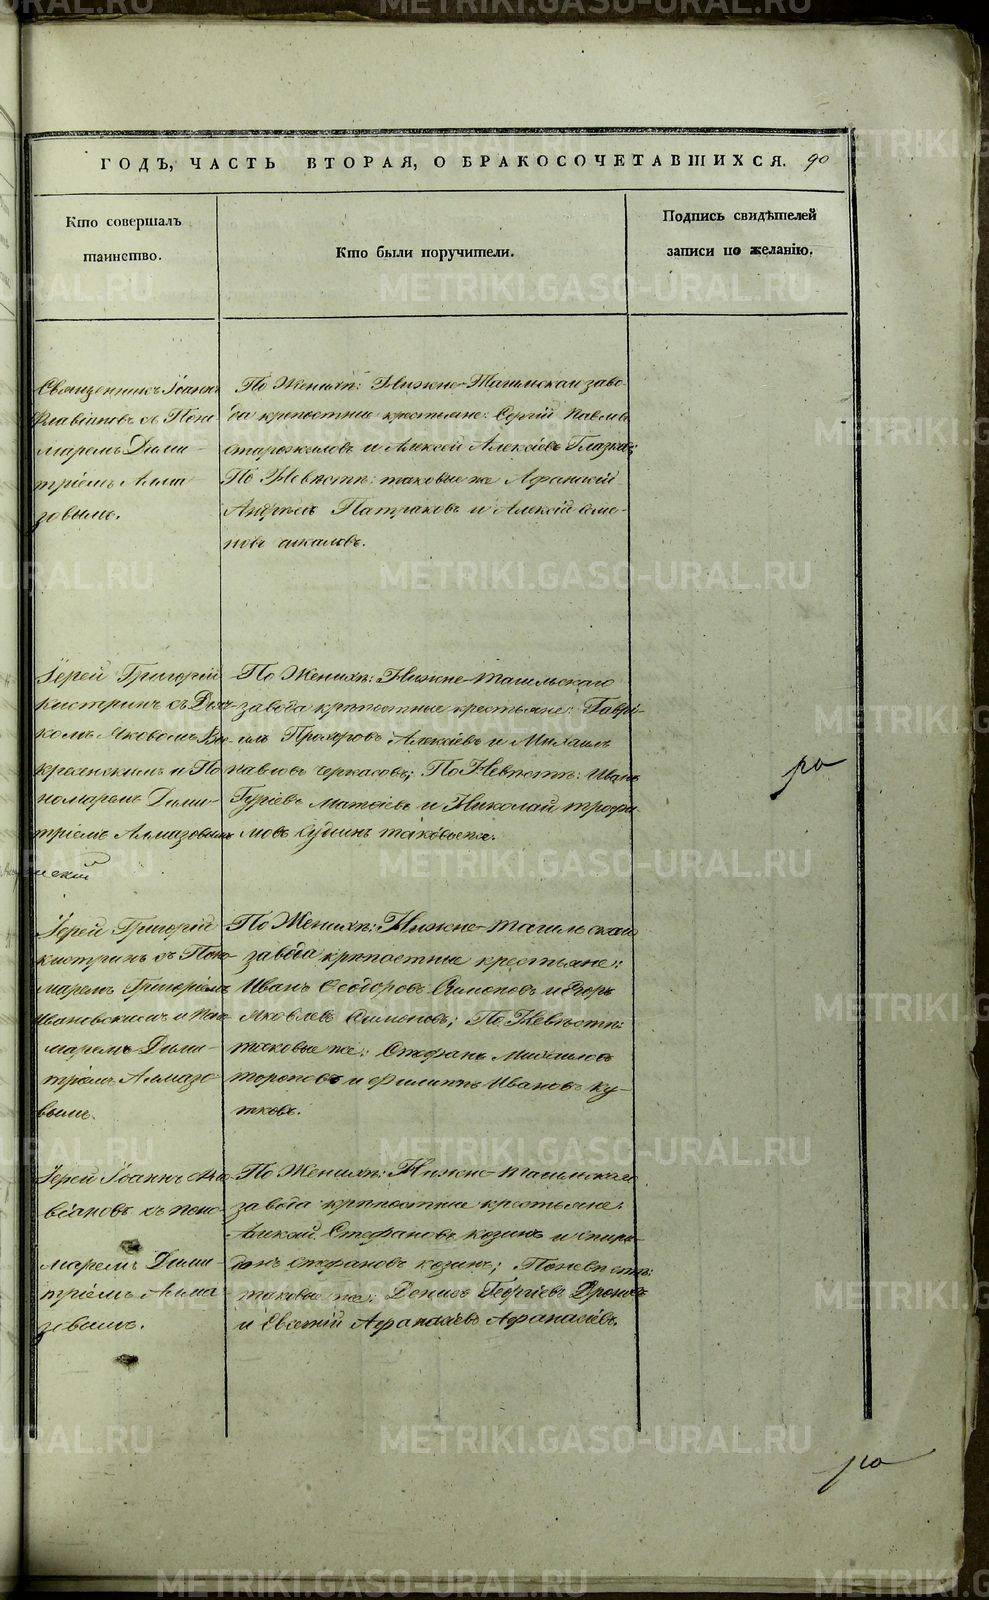 ГОДЪ, ЧАСТЬ ВТОРАЯ, О БРАКОСОЧЕТАВШИХСЯ. 90
Кто совершалъ
таинство.
Кто были поручители.
Подпись свидѣтелей
записи по желанію.
Священникъ Іоаннъ
Флавіановъ съ Поно-
маремъ Дими-
тріемъ Алма-
зовымъ.
По Женихѣ: Нижне-Тагильскаго заво-
да крѣпостные крестьяне: Сергій Павловъ
Старожиловъ и Алексей Алексѣевъ Глазковъ
По Невѣстѣ: таковые же Афанасій
Андреевъ Патраковъ и Алексій Семе-
новъ
Іерей Григорій
Кистринъ съ Діа-
комъ Яковомъ Во-
скресенскимъ и По
номаремъ Дими-
тріемъ Алмазовымъ
По Женихѣ: Нижне-Тагильскаго
завода крѣпостные крестьяне: Гаврі-
илъ Прохоровъ Алексѣевъ и Михаилъ
Павловъ Черкасовъ; По Невѣстѣ: Иванъ
Гуріевъ Матвіевъ и Николай Трофи-
мовъ Судинъ таковые же.
Іерей Григорій
Кистринъ съ Поно-
маремъ Григоріемъ
Ивановскимъ и Поно-
маремъ Дими-
тріемъ Алмазо-
вымъ.
По Женихѣ: Нижне-Тагильскаго
завода крѣпостные крестьяне:
Иванъ Ѳеодоровъ Симоновъ и Егоръ
Яковлевъ Симоновъ; По Невѣстѣ:
таковые же: Стефанъ Михаиловъ
Тороповъ и Филиппъ Ивановъ Ку-
тковъ.
Іерей Іоаннъ Фла-
віановъ съ Поно-
маремъ Дими-
тріемъ Алма-
зовымъ.
По Женихѣ: Нижне-Тагильскаго
завода крѣпостные крестьяне:
Алексій Стефановъ Козинъ и Спири-
донъ Стефановъ Козинъ; По Невѣстѣ:
таковые же: Денисъ Георгіевъ
и Евсевій Афанасіевъ Афанасіевъ.
METRIKI.GASO-URAL.RU